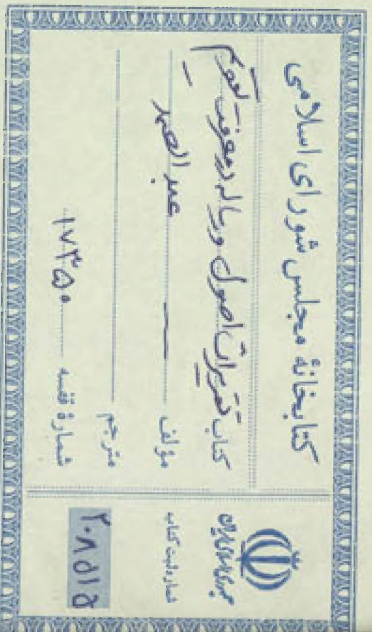 کتابخانهٔ مجلس شورای اسلامی
کتاب تقریرات اصول و رساله در معرفت تقویم
مؤلف عبدالصمد
مترجم
شمارهٔ قفسه ۱۷۳۵۰
جمهوری اسلامی ایران
شماره ثبت کتاب
۲۰۸۵۱۵